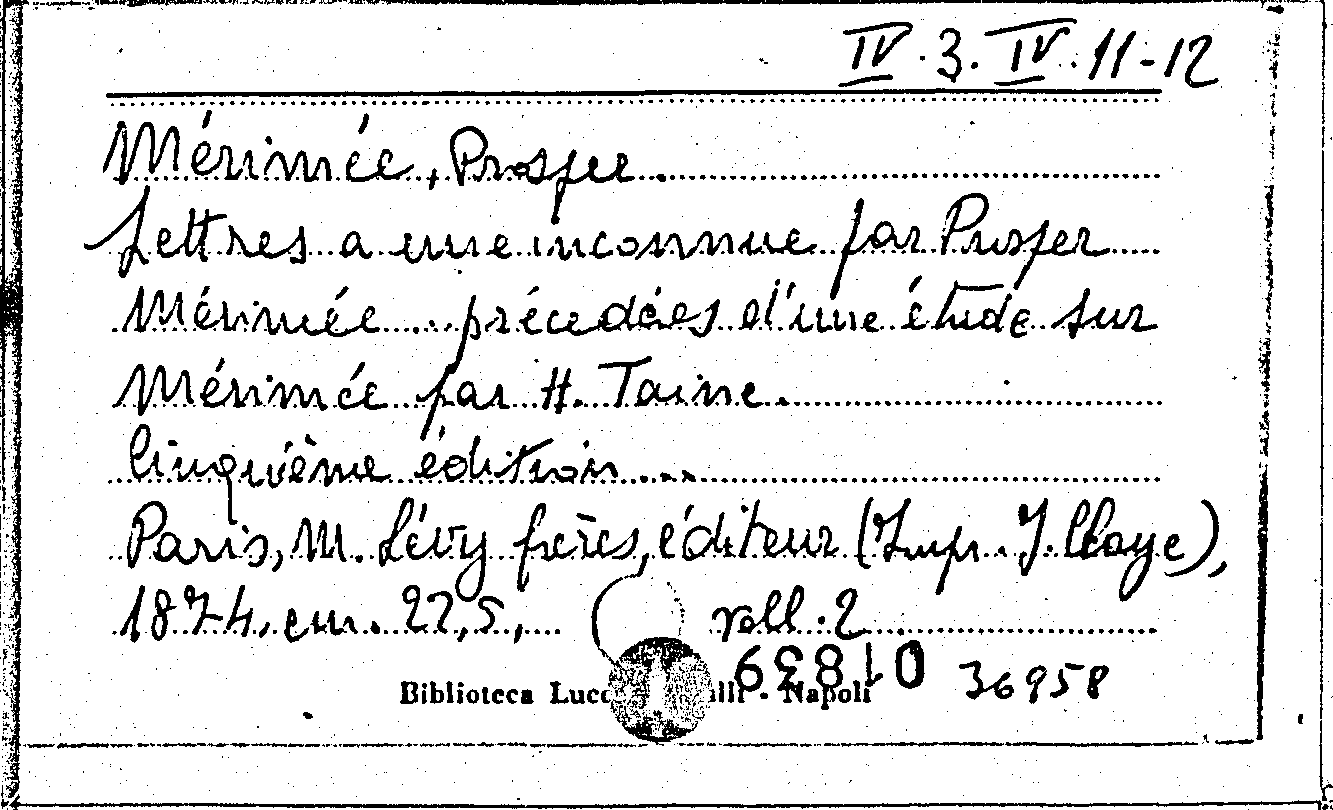 IV.3.IV.11-12
Mérimée, Prosper.
Lettres a une inconnue par Prosper
Mérimée ... précedées d'une étude sur
Mérimée par H. Taine.
Cinquième édition ...
Paris, M. Lévy frères, éditeur (Imp. J. Claye),
1874, cm. 22,5, voll. 2
018839 36958
Biblioteca - Napoli